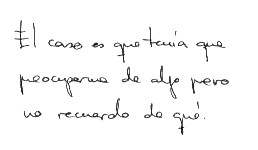 El caso es que tenía que
preocuparme de algo pero
no recuerdo de qué.